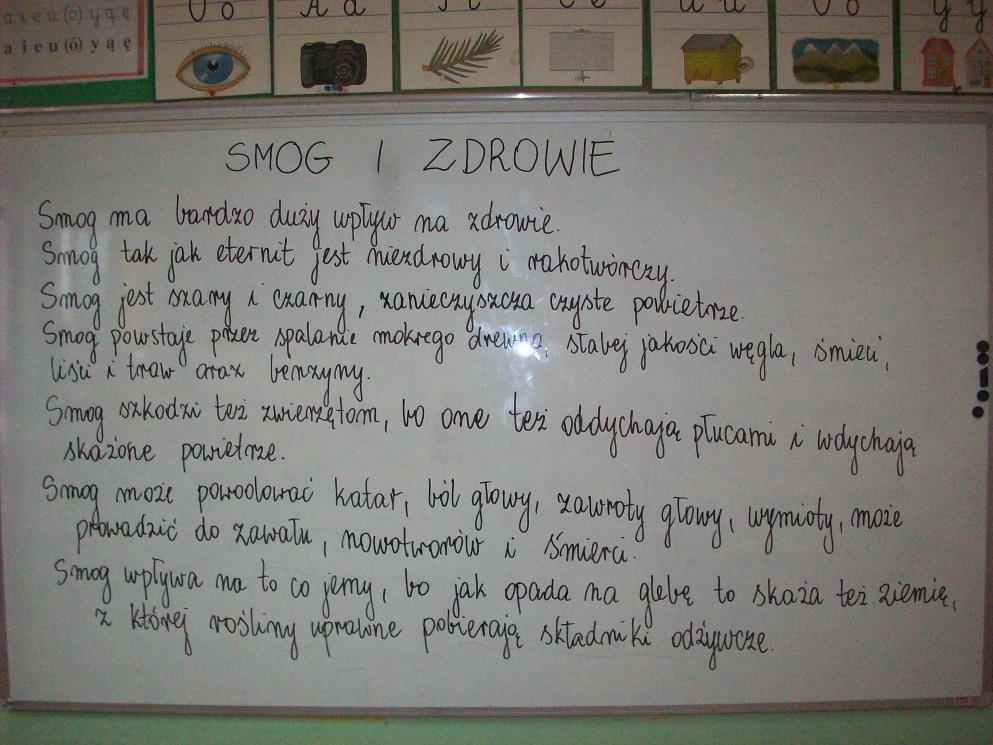 a i e u (ó) y ą ę
a i e u (ó) y ą ę
SMOG I ZDROWIE
Smog ma bardzo duży wpływ na zdrowie.
Smog tak jak eternit jest niezdrowy i rakotwórczy.
Smog jest szary i czarny, zanieczyszcza czyste powietrze.
Smog powstaje przez spalanie mokrego drewna, słabej jakości węgla, śmieci,
liści i traw oraz benzyny.
Smog szkodzi też zwierzętom, bo one też oddychają płucami i wdychają
skażone powietrze.
Smog może powodować katar, ból głowy, zawroty głowy, wymioty, może
prowadzić do zawału, nowotworów i śmierci.
Smog wpływa na to co jemy, bo jak opada na glebę to skaża też ziemię,
z której rośliny uprawne pobierają składniki odżywcze.